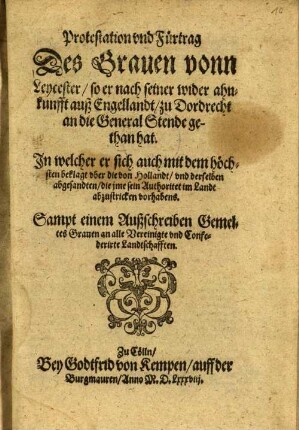 Protestation vnd Fürtrag
Des Grauen vonn
Leycester / so er nach seiner wider ahn-
kunfft auß Engellandt / zu Dordrecht
an die General Stende ge-
than hat.
In welcher er sich auch mit dem höch-
sten beklagt vber die von Hollandt / vnd derselben
abgesandten / die jme sein Authoritet im Landt
abzustricken vorhabens.
Sampt einem Außschreiben Gemel-
tes Grauen an alle Vereinigte vnd Confe-
derirte Landtschafften.
Zu Cölln /
Bey Godtfrid von Kempen / auff der
Burgmauren / Anno M. D. Lxxxviij.